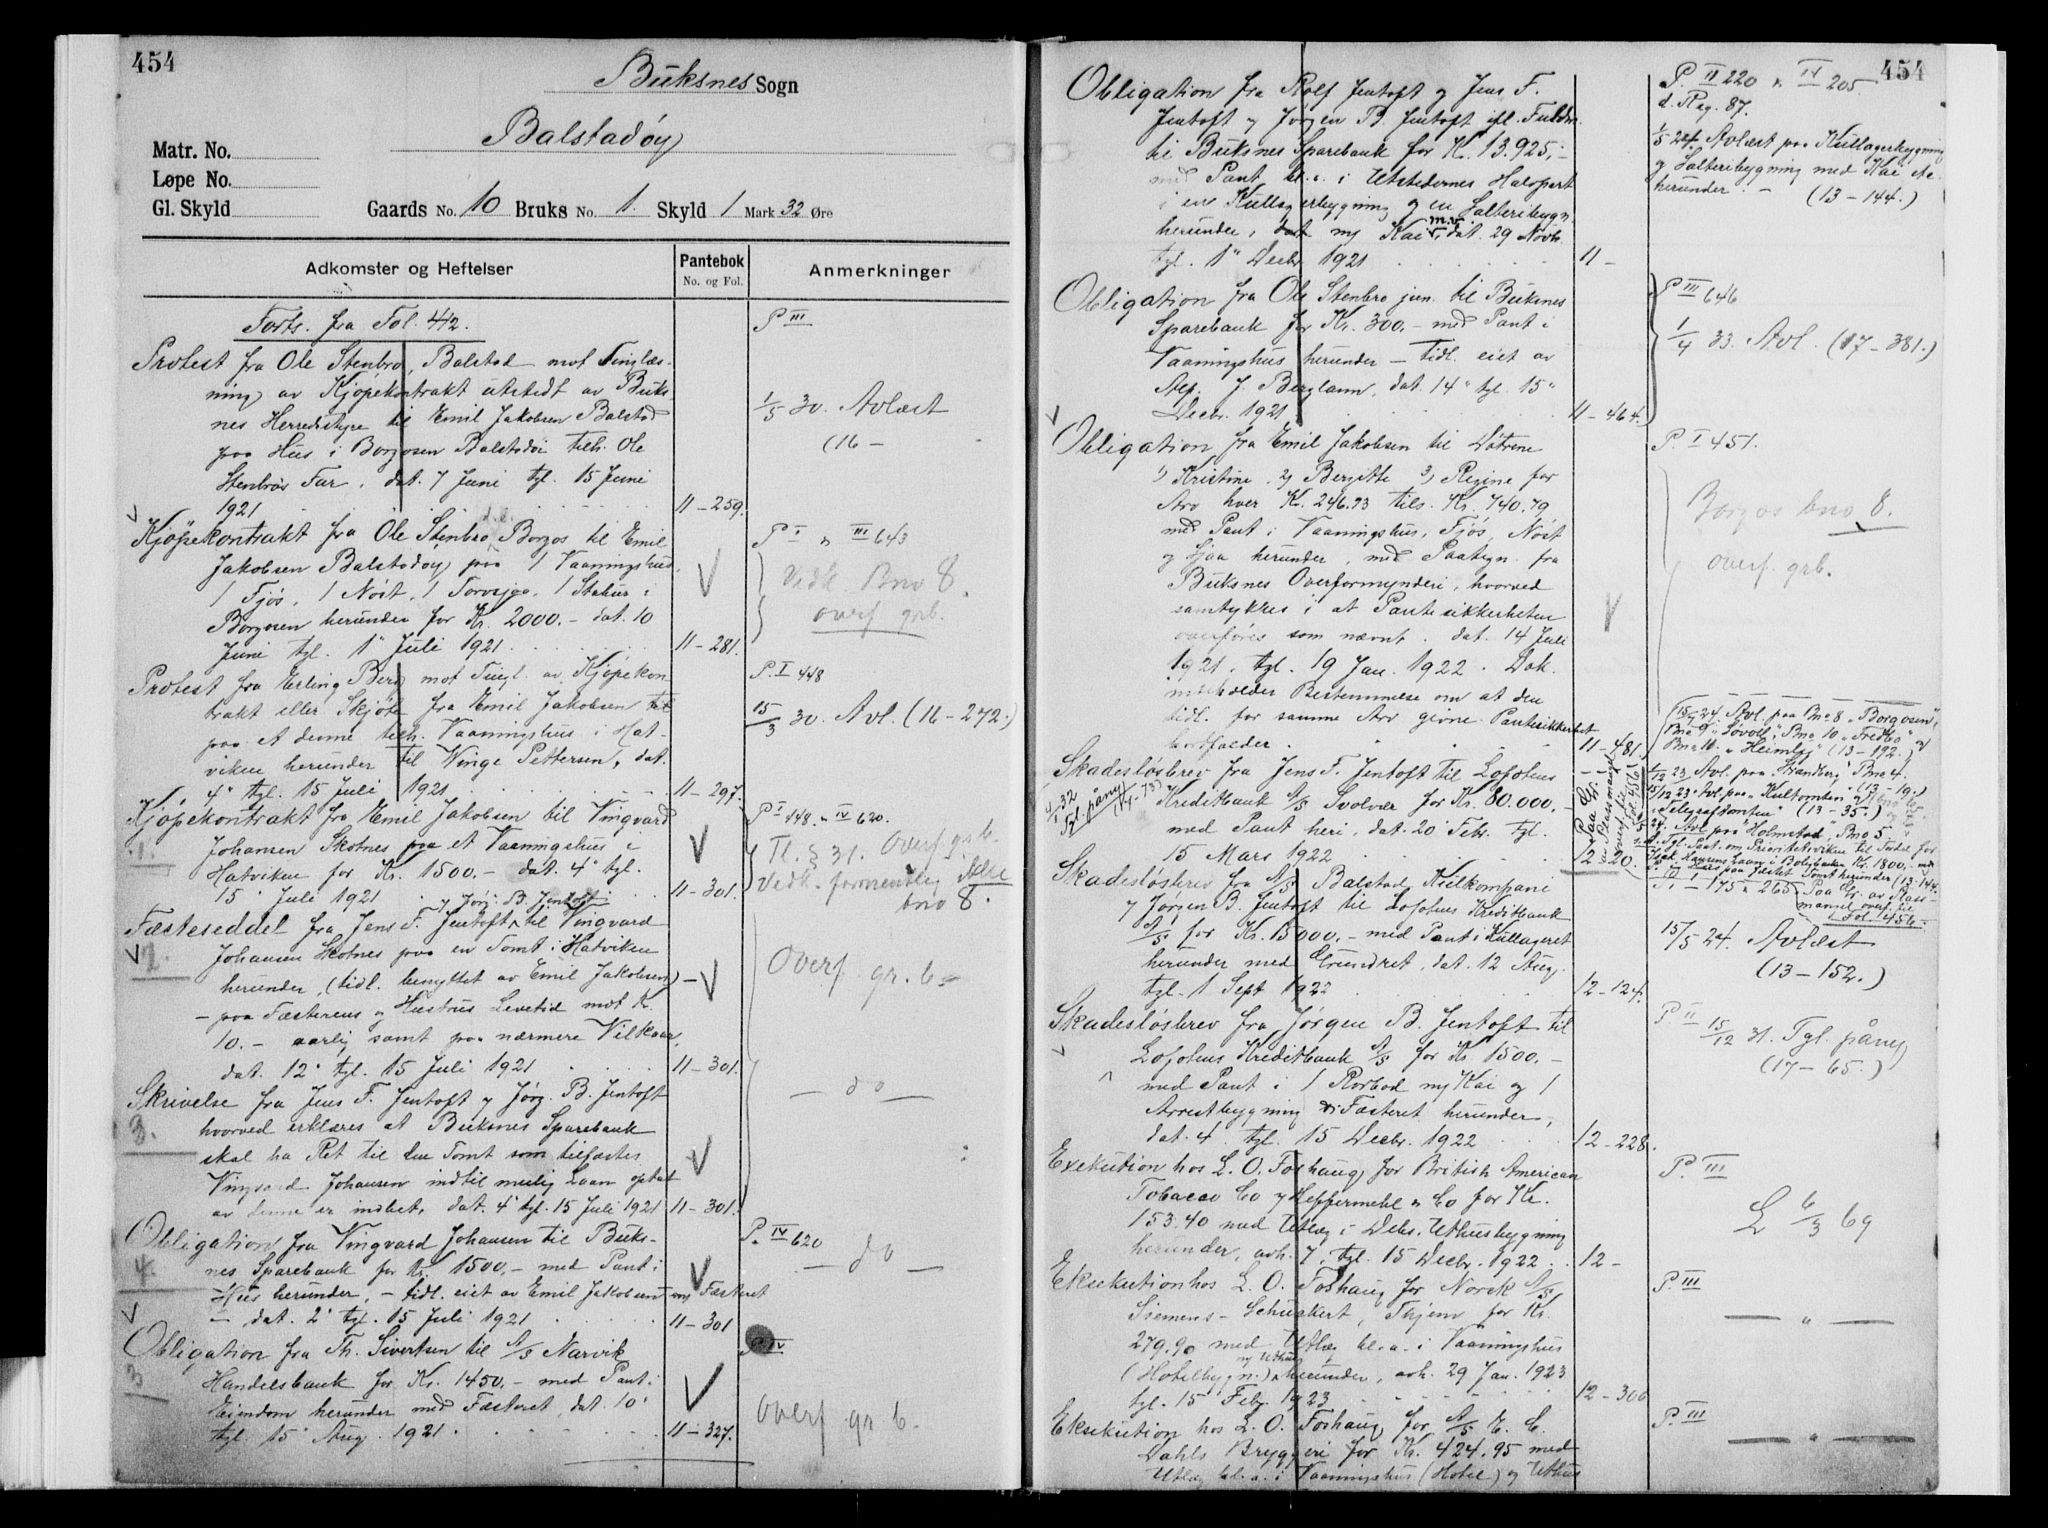 454
Buksnes Sogn
Balstadøy
Matr. No.
Løpe No.
Gl. Skyld
Gaards No. 10 Bruks No. 1. Skyld 1 Mark 32 Øre
Adkomster og Heftelser
Pantebok
No. og Fol.
Anmerkninger
Forts. fra Fol. 442.
P III
Protest fra Ole Stenbro, Balstad mot Tinglæs-
ning av Kjøpekontrakt utstedt av Buks-
nes Herredstyre til Emil Jakobsen Balstad
paa Hus i Borgosen Balstadøi tilh. Ole
Stenbros Far, dat. 7 Juni tgl. 15 Juni
1921 11-259.
1/5 30. Avlæst
(16 -
Kjøpekontrakt fra Ole Stenbro Borgos til Emil
Jakobsen Balstadøy paa 1 Vaaningshus,
1 Fjøs, 1 Nøst, 1 Torvsjaa, 1 Stabur i
Borgosen herunder for Kr. 2000.- dat. 10
Juni tgl. 1' Juli 1921 11-281.
P I " III 643
Vidk Bno 8.
overf grb.
Protest fra Erling Berg mot Tingl. av Kjøpekon
trakt eller Skjøte fra Emil Jakobsen til
paa et denne tilh. Vaaningshus i Hat-
viken herunder til Winge Pettersen, dat.
4' tgl. 15 Juli 1921 11-297.
P. I 448
15/3 30. Avl. (16-272.)
Kjøpekontrakt fra Emil Jakobsen til Vingvard
1.
Johansen Skotnes paa et Vaaningshus i
Hatviken for Kr. 1500.- dat. 4' tgl.
15 Juli 1921 11-301.
P I 448. " IV 620.
Tl. § 31. Overf grb.
Vedk. formentlig
bno 8.
y Jørg. B. Jentoft
Fæsteseddel fra Jens F. Jentoft til Vingvard
2.
Johansen Skotnes paa en Tomt i Hatviken
herunder, (tidl. benyttet av Emil Jakobsen) -
- paa Fæsterens og Hustrus Levetid mot K.
10.- aarlig samt paa nærmere Vilkaar,
dat. 12' tgl. 15 Juli 1921 11-301.
Overf. gr. b.
Skrivelse fra Jens F. Jentoft y Jørg. B. Jentoft
3.
hvorved erklæres at Buksnes Sparebank
skal ha Ret til den Tomt som tilfæstes
Vingvard Johansen indtil mulig Laan optat
av denne er indbet. dat. 4' tgl. 15 Juli 1921 11-301.
- do -
Obligation fra Vingvard Johansen til Buks-
4.
nes Sparebank for Kr. 1500.- med Pant i
Hus herunder, - tidl. eiet av Emil Jakobsen - m/ Fæsteret
- dat. 2' tgl. 15 Juli 1921 11-301
P. IV 620
- do -
Obligation fra Th. Sivertsen til A/S Narvik
Handelsbank for Kr. 1450.- med Pant i
Eiendom herunder med Fæsteret, dat. 10'
tgl. 15' Aug. 1921 11-327.
P IV
Overf. gr b.
454
Obligation fra Rolf Jentoft y Jens F.
Jentoft y Jørgen B Jentoft ifl. Fuldm.
til Buksnes Sparebank for Kr. 13.925,-
med Pant bl. a. i Utstedernes Halvpart
i ene Kullagerbygning y en Salteribygn
herunder, m/ Kai m.v. dat. 29 Novb.
tgl. 1" Decbr 1921 11 -
P. II 220 " IV 205.
d. Reg. 87.
1/5 24. Avlæst paa Kullagerbygning
og Salteribygning med Kai
herunder. - (13-144.)
Obligation fra Ole Stenbro jun. til Buksnes
Sparebank for Kr. 300.- med Pant i
Vaaningshus herunder - tidl. eiet av
Alf. J. Berglann, dat. 14" tgl. 15"
Decbr. 1921 11-464.
P III 646
1/4 33. Avl. (17-381.)
Obligation fra Emil Jakobsen til Døtrene
1) Kristine, 2) Bergitte 3) Regine for
Arv hver Kr. 246.93 tils. Kr. 740.79
med Pant i Vaaningshus, Fjøs, Nøst
og Sjaa herunder, med Paategn. fra
Buksnes Overformynderi, hvorved
samtykkes i at Pantesikkerheten
overføres som nævnt. dat. 14 Juli
1921. tgl. 19 Jan. 1922. Dok.
indeholder Bestemmelse om at den
tidl. for samme Arv givne Pantesikkerhet
bortfalder. 11-481
P. I 451.
Borgos bno 8.
overf. grb.
Skadesløsbrev fra Jens F. Jentoft til Lofotens
Kreditbank A/S Svolvær for Kr. 80.000,-
med Pant heri, dat. 20' Febr. tgl.
15 Mars 1922 12-20.
4/1 32
Tgl. påny
15/7 24 Avl. paa Bno 8 "Borgosen",
Bno 9 "Lovoll", Bno 10 "Fredbo" y
Bno 11. "Heimly" (13-192.)
1/12 23 Avl. paa "Strandberg" Bno 4.
(13-19.)
15/12 23 Avl. paa "Kultomten" y
"Telegraftomten" (13-35.)
Avl paa "Holmstad", Bno 5
Skadesløsbrev fra A/S Balstad Kulkompani
y Jørgen B. Jentoft til Lofotens Kreditbank
A/S for Kr. 15000.- med Pant i Kullageret
herunder med Grundret, dat. 12 Aug.
tgl. 1 Sept 1922 12-124.
P. II-175 " 265
15/5 24. Avlæst
(13-152.)
Skadesløsbrev fra Jørgen B. Jentoft til
Lofotens Kreditbank A/S for Kr 1500.-
med Pant i 1 Rorbod m/ Kai og 1
Arrestbygning Fæsteret herunder,
dat. 4. tgl. 15 Decbr. 1922 12-228.
P II 15/12 31. Tgl. påny
(17-65.)
Exekution hos L. O. Foshaug for British American
Tobacco Co y Heffermehl & Co for Kr.
153.40 med Utlæg i Debs. Uthusbygning
herunder, avh. 7. tgl. 15 Decbr. 1922 12 -
P. III
L 6/3 69
Eksekution hos L. O. Foshaug for Norsk A/S
Siemens-Schuckert, Trhjem for Kr.
279.90 med Utlæg bl. a. i Vaaningshus
m/ Uthus
(Hotelbygn.) herunder, avh. 29 Jan. 1923
tgl. 15 Febr. 1923 12-306
P. III
- " -
Eksekution hos L. O. Foshaug for A/S E. C.
Dahls Bryggeri for Kr. 424.95 med
Utlæg bl. a. i Vaaningshus (Hotel) og Uthus
P. III
- " -